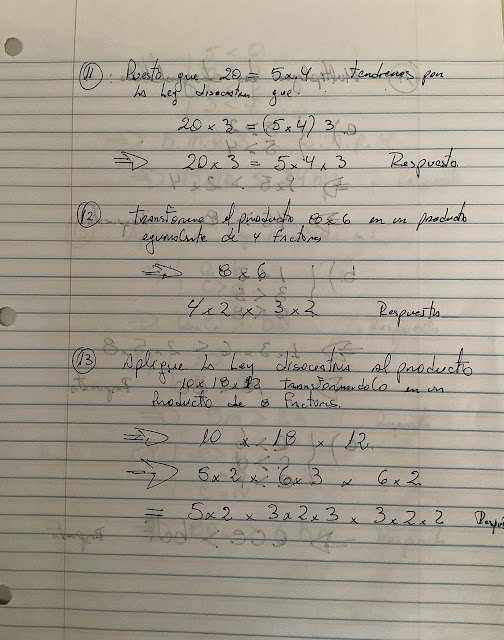 11 Puesto que 20 = 5x4 tendremos por
la Ley disociativa que.
20 x 3 = (5x4) 3
⇒ 20 x 3 = 5x4x3 Respuesta
12 Transforme el producto 8x6 en un producto
equivalente de 4 factores
⇒ 8 x 6
4 x 2 x 3 x 2 Respuesta
13 Aplique la Ley disociativa al producto
10x18x12 transformandolo en un
Producto de 8 factores.
⇒ 10 x 18 x 12
⇒ 5x2 x 6x3 x 6x2
= 5x2 x 3x2x3 x 3x2x2